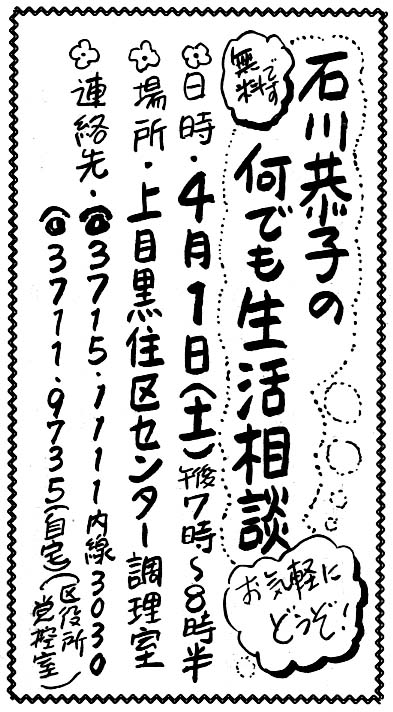 石川恭子の
何でも生活相談
無料です
お気軽に
どうぞ!
日時・4月1日(土)午後7時〜8時半
場所・上目黒住区センター調理室
連絡先・☎3715・1111内線3030
(区役所
控室)
☎3711・9735(自宅)